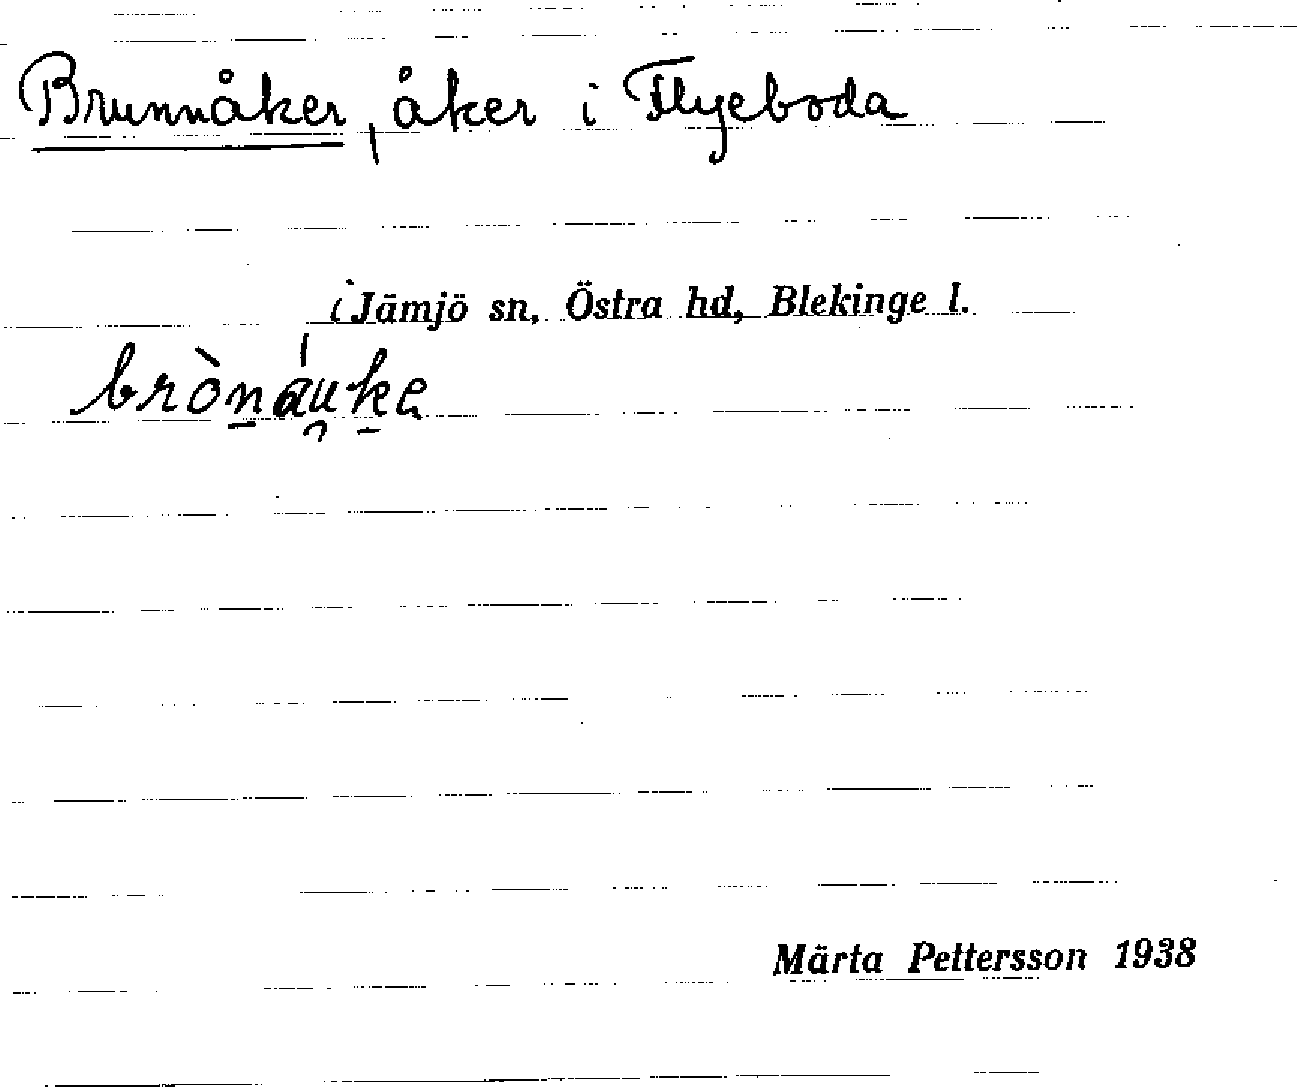 Brunnåker, åker i Flyeboda
i Jämjö sn, Östra hd, Blekinge l.
brònáu̯ke
Märta Pettersson 1938